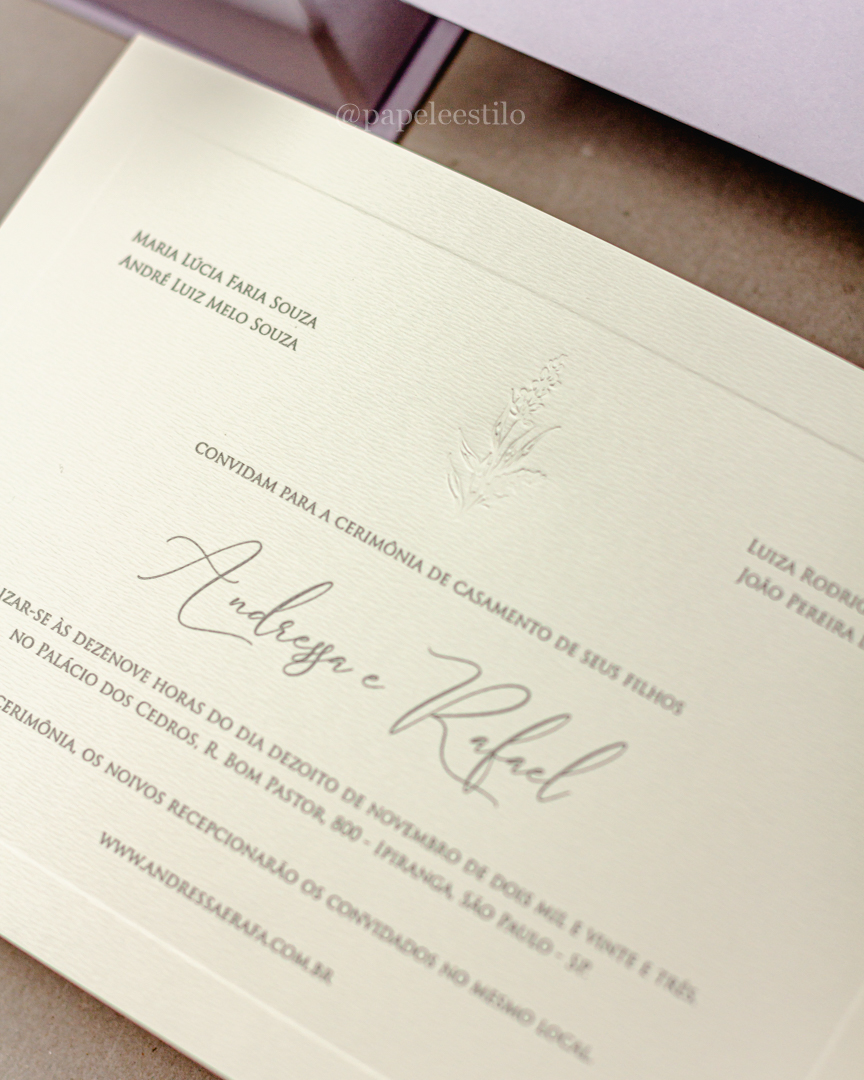 @papeleestilo
MARIA LÚCIA FARIA SOUZA
ANDRÉ LUIZ MELO SOUZA
LUIZA
JOÃO PEREIRA
CONVIDAM PARA A CERIMÔNIA DE CASAMENTO DE SEUS FILHOS
Andressa e Rafael
IZAR-SE ÀS DEZENOVE HORAS DO DIA DEZOITO DE NOVEMBRO DE DOIS MIL E VINTE E TRÊS,
NO PALÁCIO DOS CEDROS, R. BOM PASTOR, 800 - IPIRANGA, SÃO PAULO - SP.
CERIMÔNIA, OS NOIVOS RECEPCIONARÃO OS CONVIDADOS NO MESMO LOCAL.
WWW.ANDRESSAERAFA.COM.BR